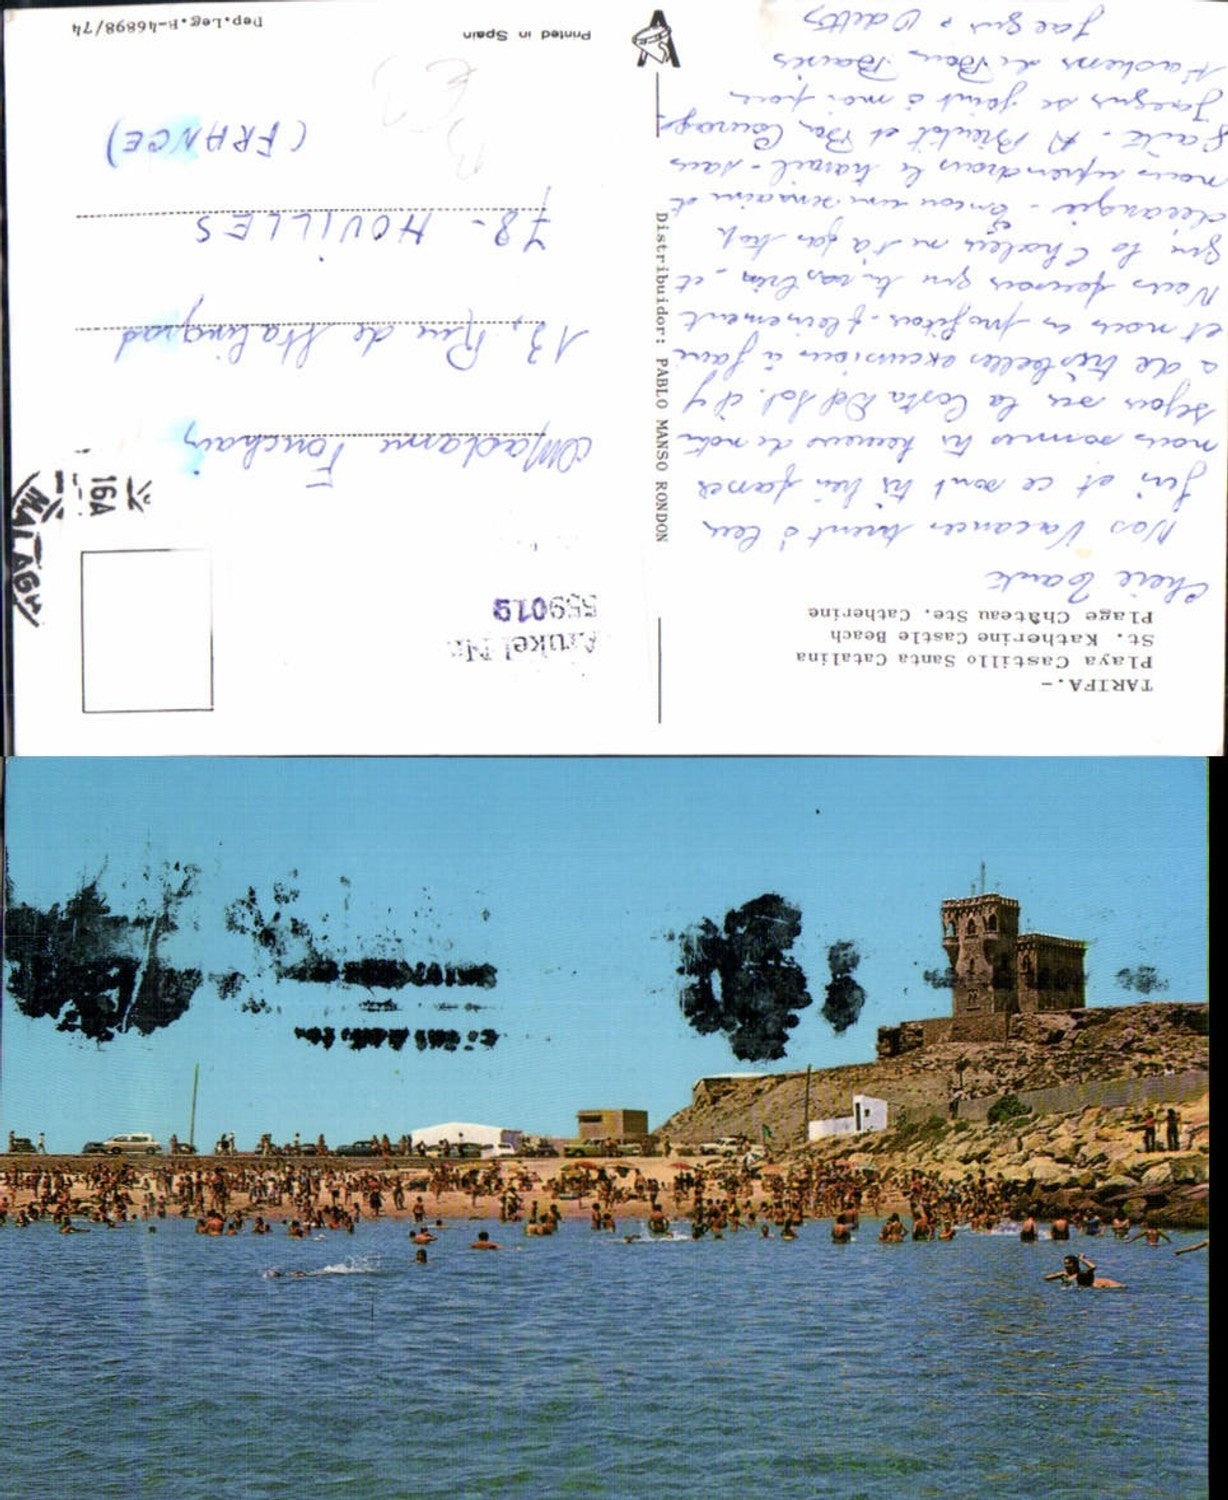 TARIFA.-
Playa Castillo Santa Catalina
St. Katherine Castle Beach
Plage Château Ste. Catherine
Chère Tante
Nos Vacances tirent à leur
fin et ce sont très bien passées
nous sommes très heureux de notre
séjour sur la Costa Del Sol. il y
a de très belles excursions à faire
et nous en profitons pleinement
Nous pensons que tu vas bien, et
que la Chaleur ne t'a pas trop
dérangée - Encore une semaine et
nous reprendrons le travail - sans
gaité - A Bientôt et Bon Courage
Jacques se joint à moi pour
de Bons Baisers
Jacques
Distribuidor: PABLO MANSO RONDON
Artikel Nr.
559019
MALAGA
16A
Madame Fonchain
13, Rue de Stalingrad
78 - HOUILLES
(FRANCE)
Printed in Spain
Dep.Leg.B-46898/74